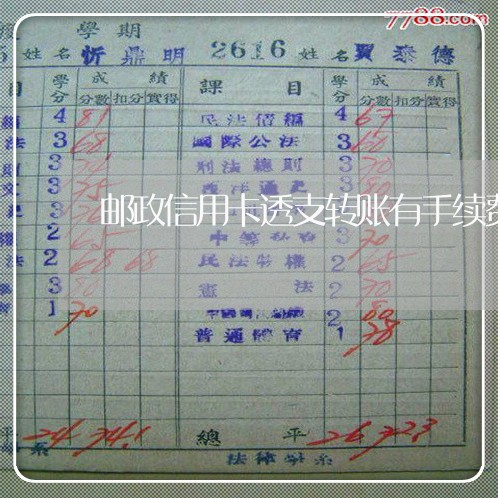 7788.com
學期
姓名 忻鼎明 2616 姓名 賈泰德
目 學分 成績 分數 扣分 實得 課目 學分 成績 分數 扣分 實得
4 81 民法債編 4 67
法 3 68 國際公法 3 60
3 刑法總則 3 70
文 3 75 3 80
邮政信用卡透支转账有手续费
2 65 3 70
法 2 68 68 民法物權 2 65
3 80 憲法 2 70
1 70 2 80
普通體育 1 78
總平 26 72.3
24 74.1
法律學系